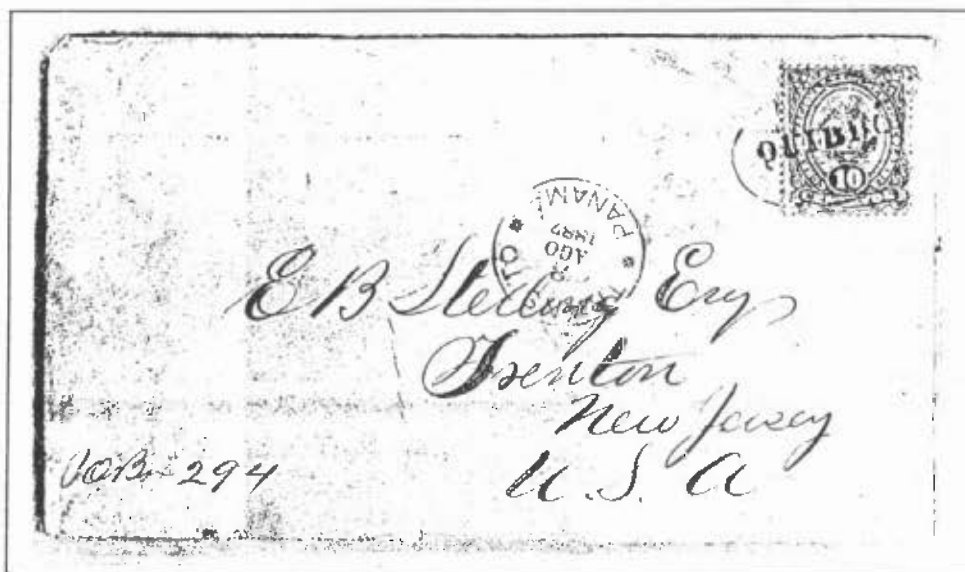 QUIBDO
10
PANAMA
TO
AGO
8
1887
E B Sterling Esq
Trenton
New Jersey
U. S. A
P O Box 294